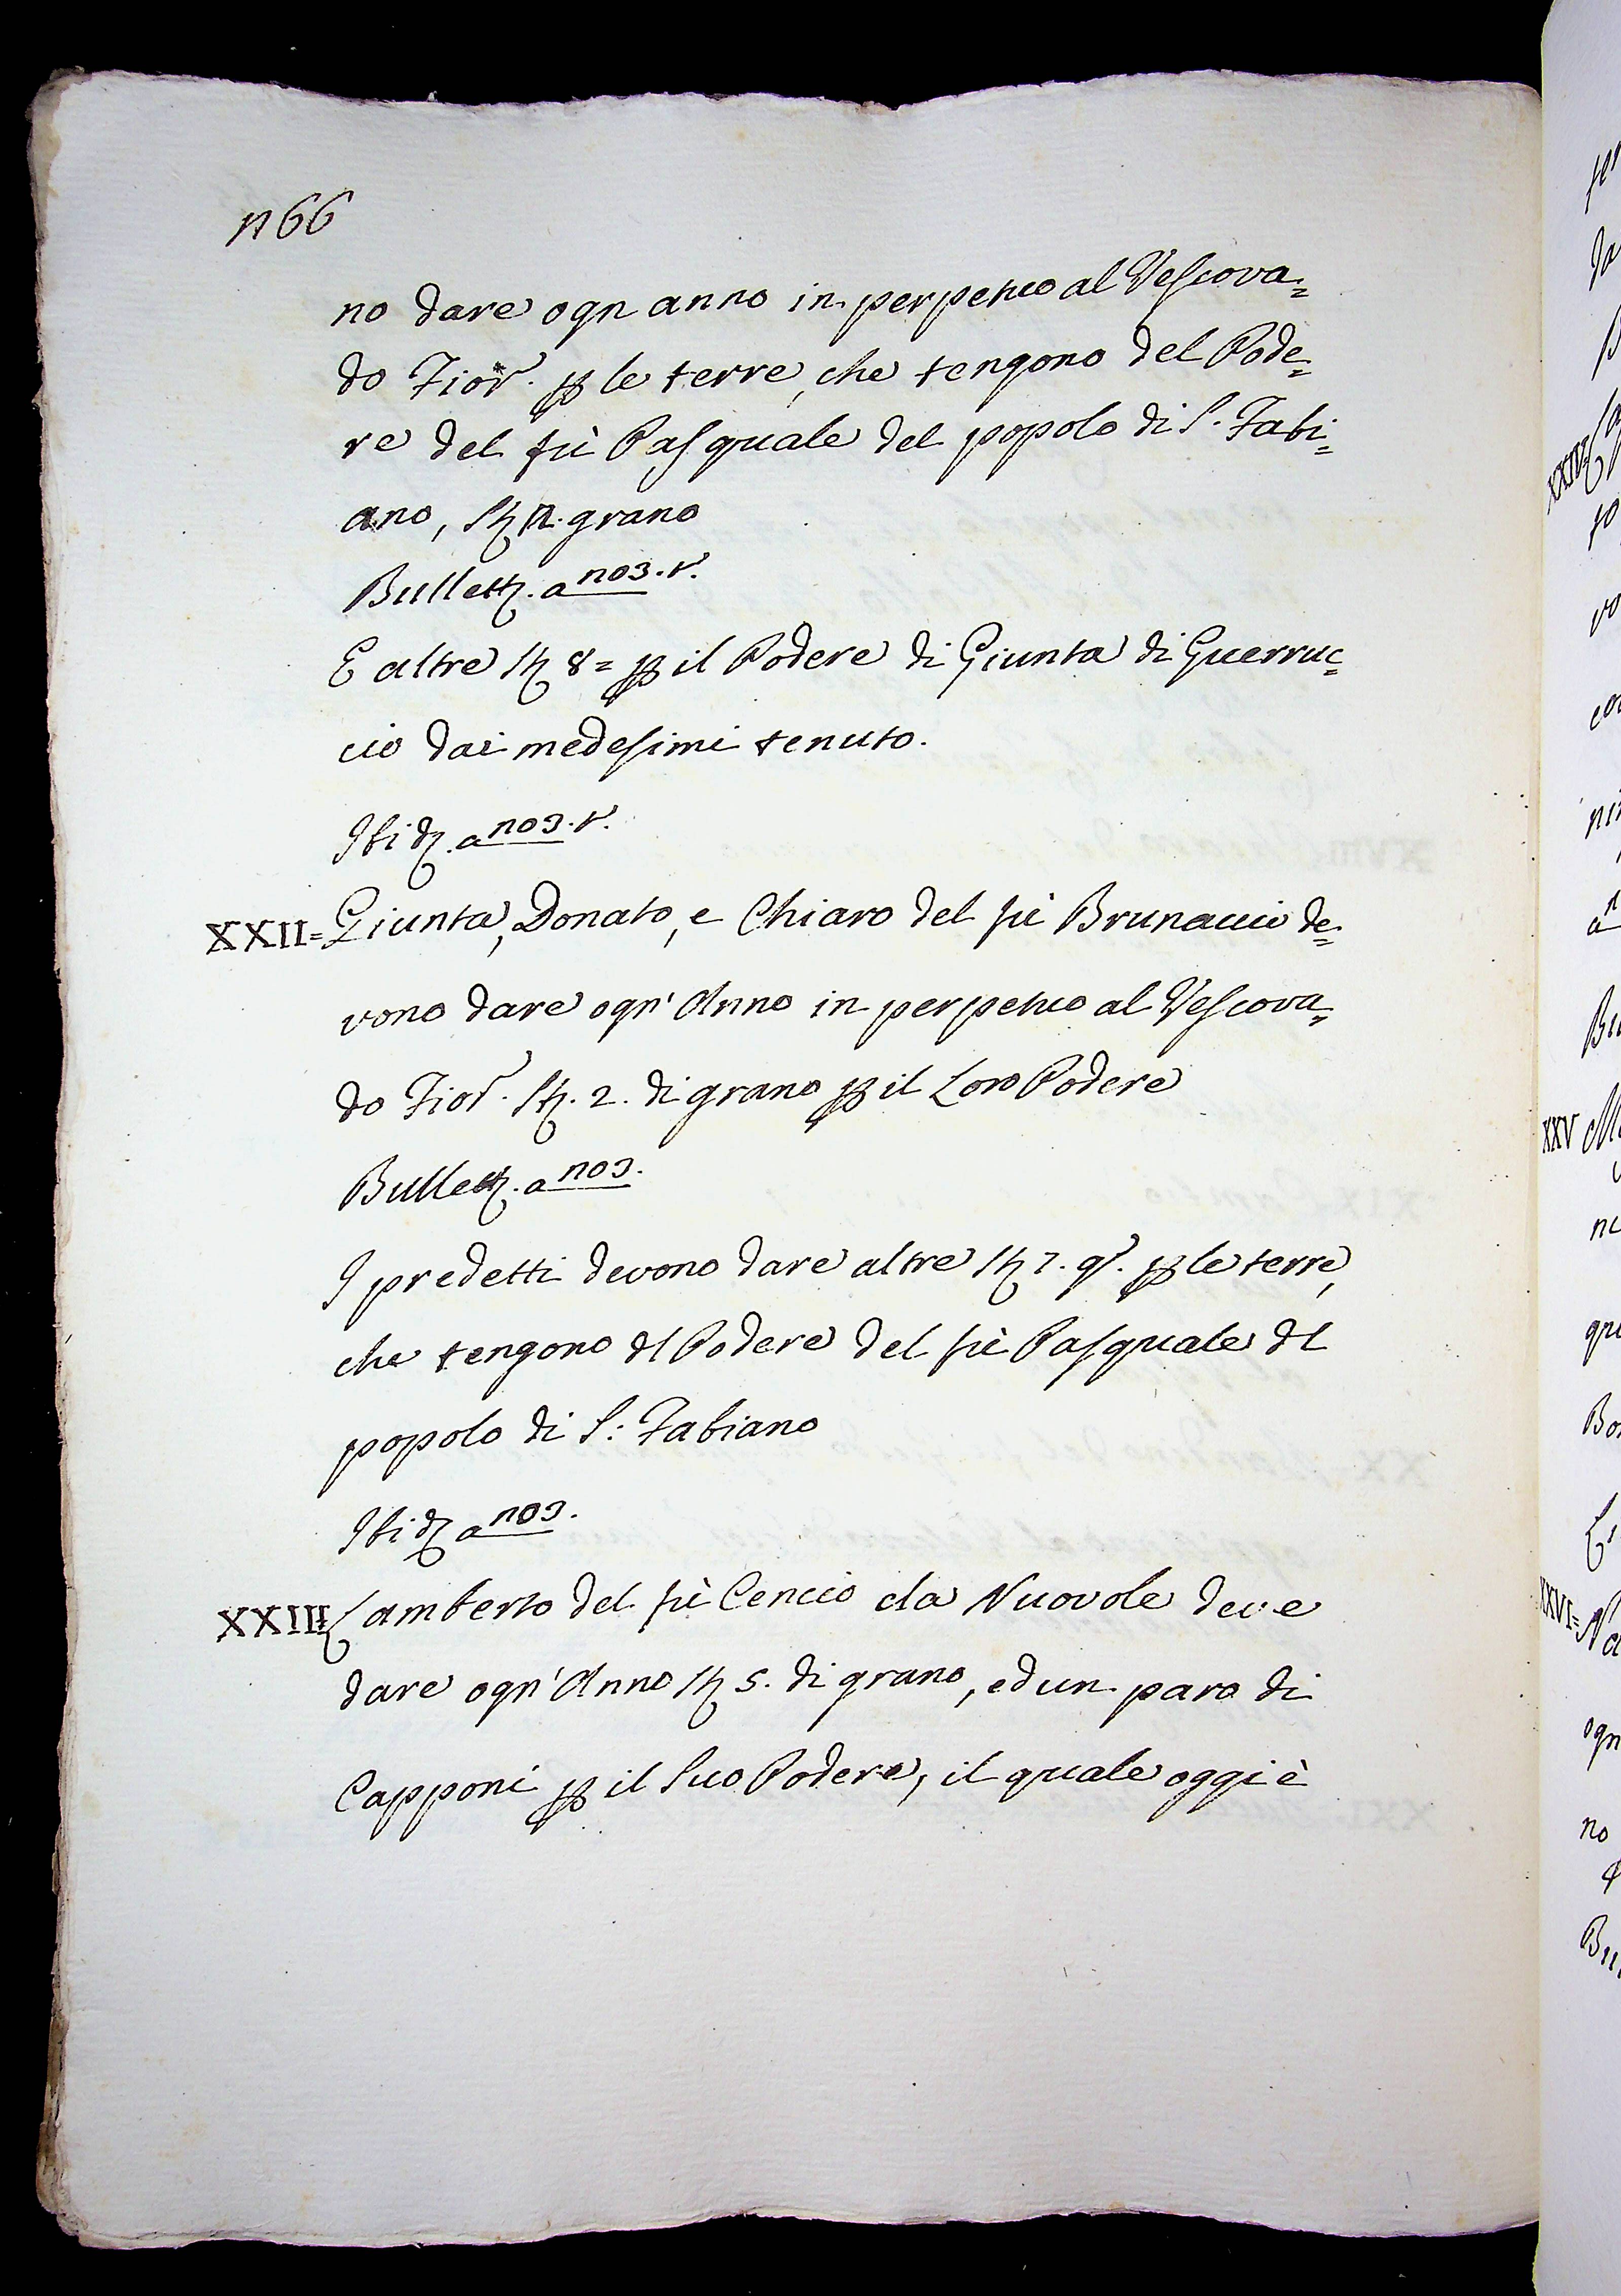 1166
no dare ogn anno in perpetuo al Vescova=
do Fior. p le terre, che tengono del Pode=
re del fù Pasquale del popolo di S. Fabi=
ano, st grano
Bullett. a 103. v.
E altre st 8= p il Podere di Giunta di Guerruc=
cio dai medesimi tenuto.
Ibid. a 103. v.
XXII= Giunta, Donato, e Chiaro del fù Brunaccio de=
vono dare ogn' Anno in perpetuo al Vescova=
do Fior. st. 2. di grano p il Loro Podere
Bullett. a 103.
I predetti devono dare altre st 7. gr. p le terre,
che tengono dl Podere del fù Pasquale dl
popolo di S: Fabiano
Ibid a 103.
XXIII Lamberto del fù Cencio da Nuovole deve
dare ogn' Anno st 5. di grano, ed un paro di
Capponi p il Suo Podere, il quale oggi è
XXIV=
XXV
XXVI=